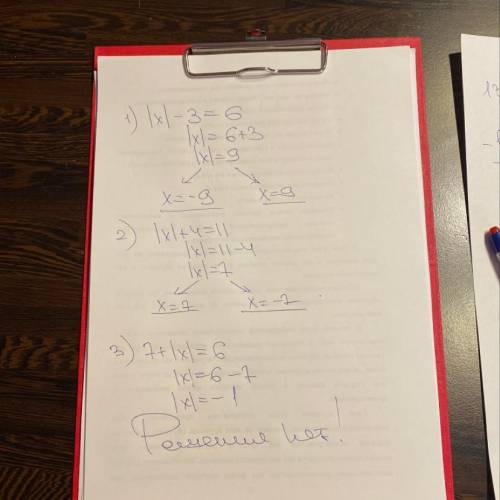 1) |x| - 3 = 6
|x| = 6+3
|x| = 9
x = -9 x = 9
2) |x| + 4 = 11
|x| = 11 - 4
|x| = 7
x = 7 x = -7
3) 7 + |x| = 6
|x| = 6 - 7
|x| = -1
Решения нет!
13